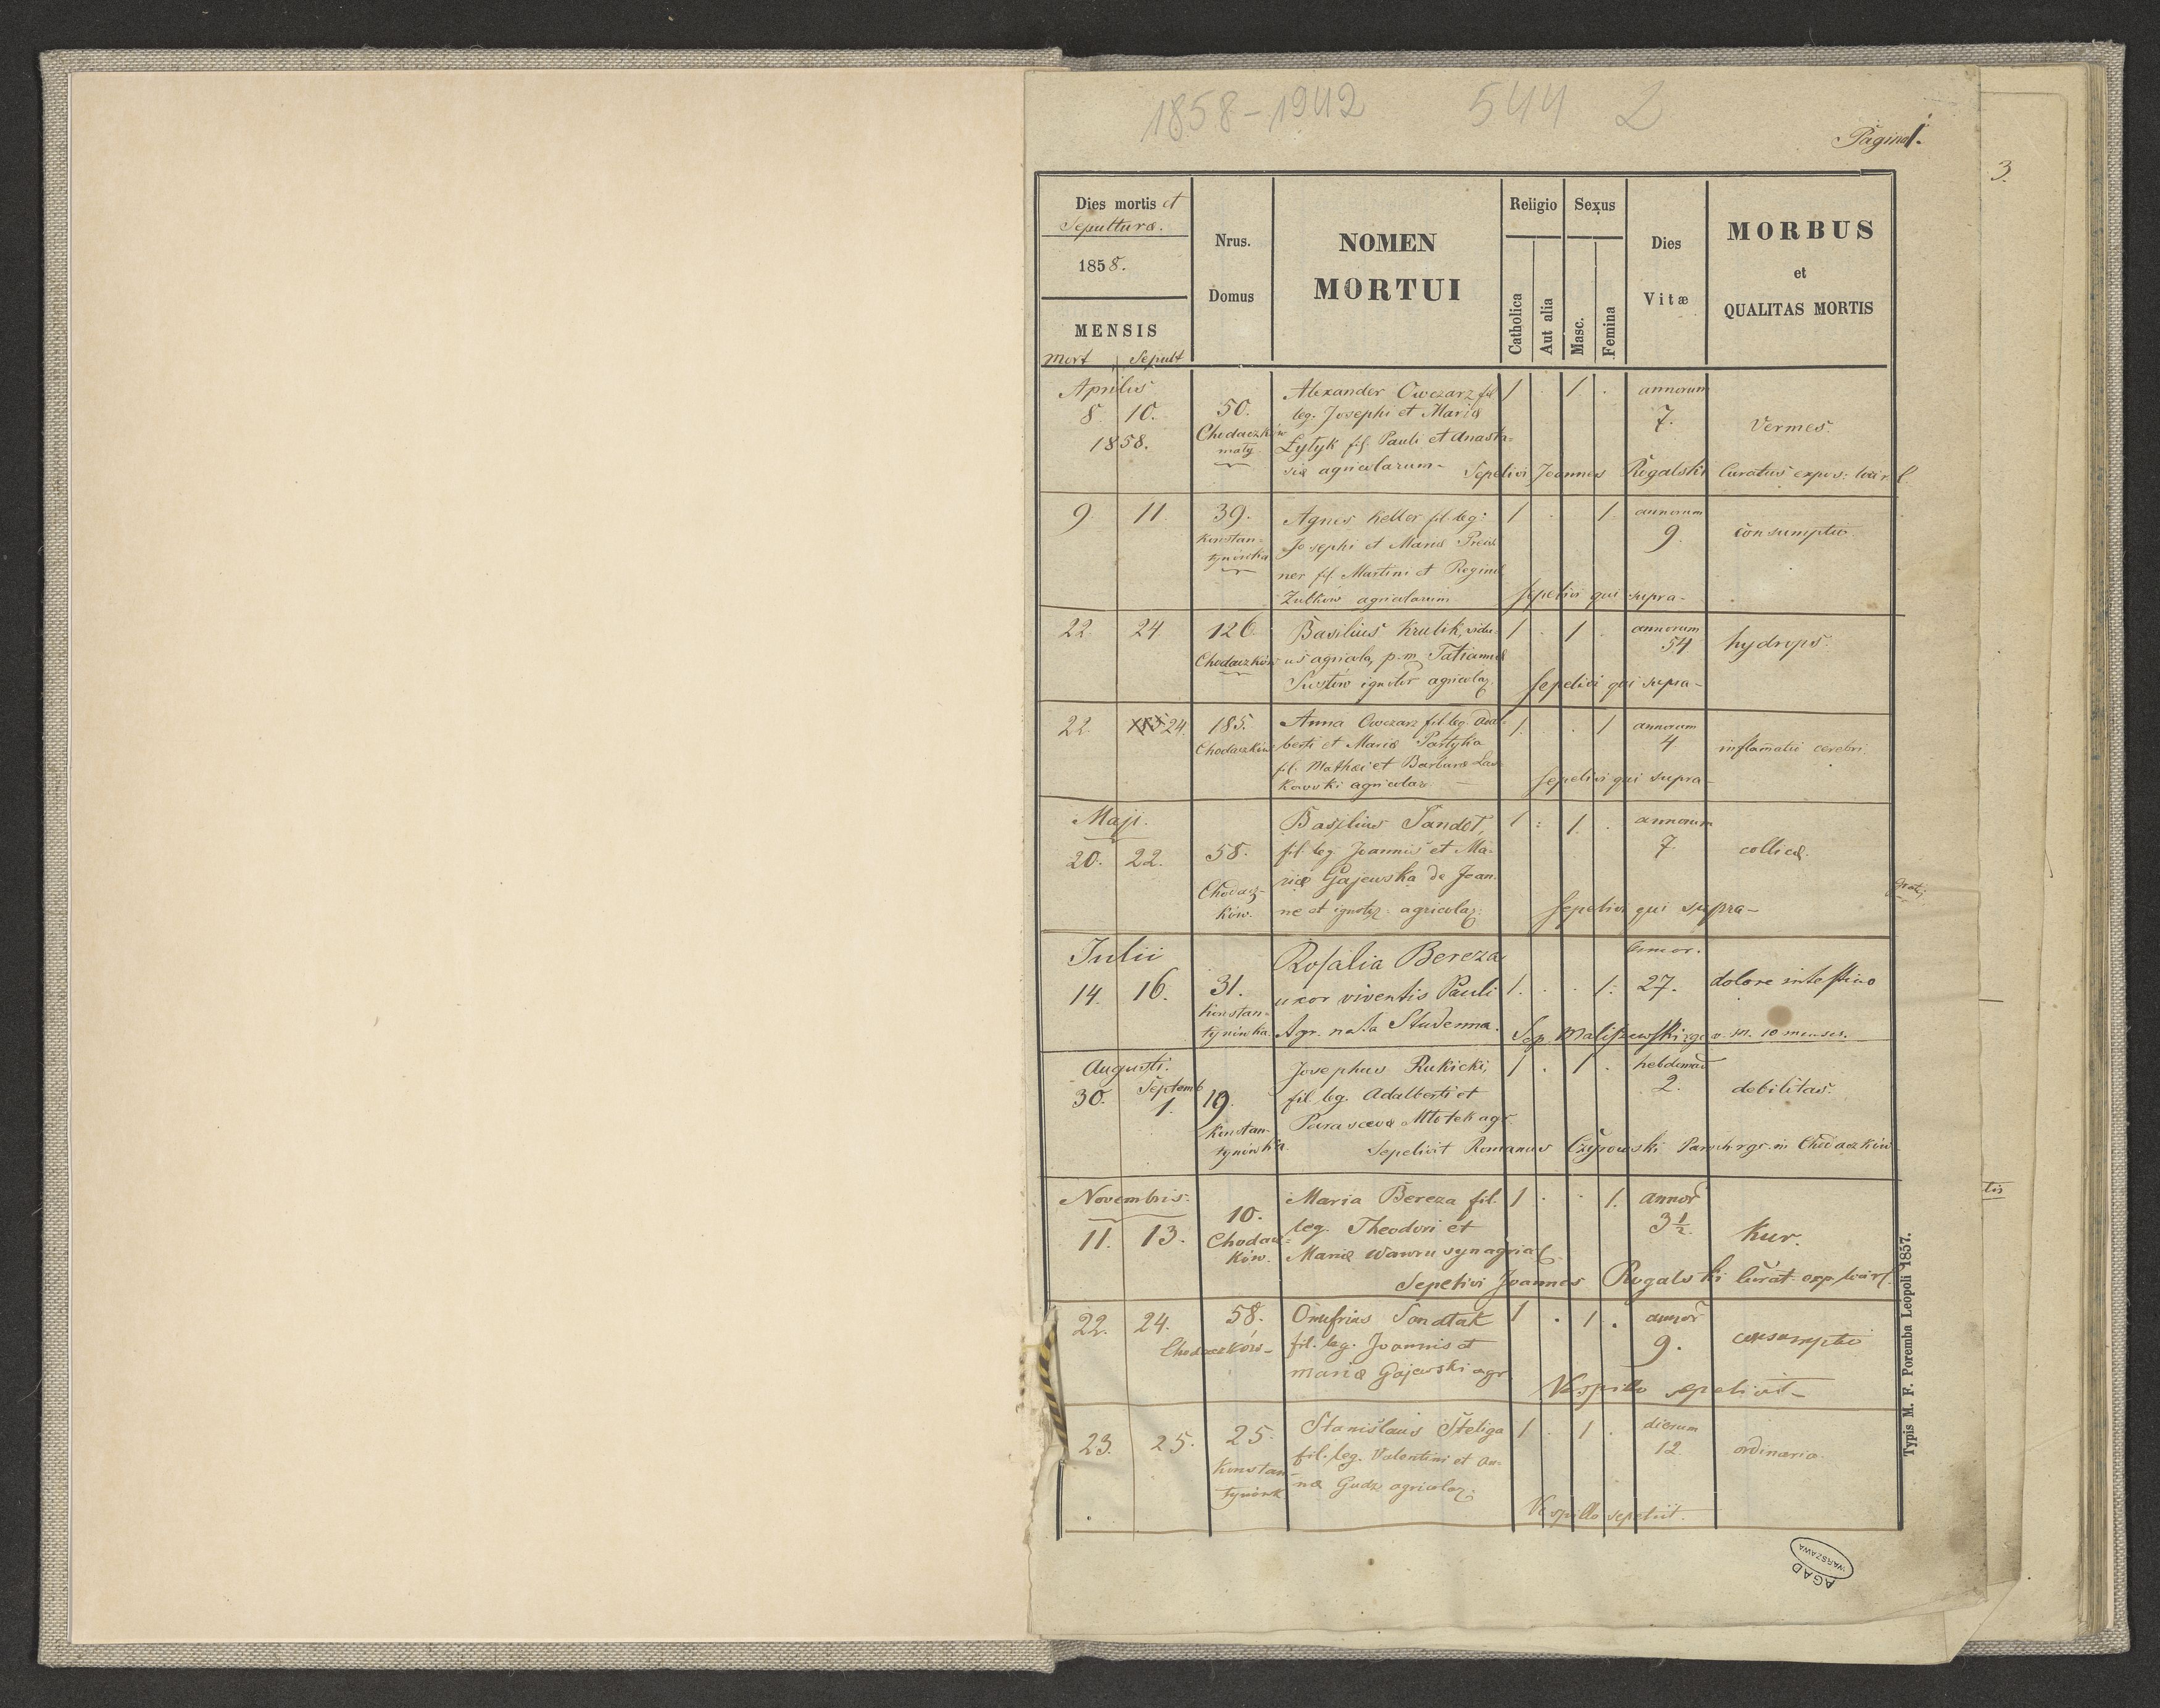 1858-1942 544 2
Pagina 1.
3.
Dies mortis et
Sepulturæ.
1858.
MENSIS
Mort Sepult
Nrus.
Domus
NOMEN
MORTUI
Religio
Catholica
Aut alia
Sexus
Masc.
Femina
Dies
Vitæ
MORBUS
et
QUALITAS MORTIS
Aprilis
8. 10.
1858.
50.
Chodaczków
mały
Alexander Owczarz fil
leg. Josephi et Mariæ
Łytyk fil. Pauli et Anasta-
siæ agricolarum-
1 . 1 .
annorum
7.
Vermes.
Sepelivi Joannes Rogalski Curatus expos:
9. 11.
39.
Konstan-
tynówka
Agnes Keller fil. leg:
Josephi et Mariæ Preis
ner fil. Martini et Reginæ
Zulkow agricolarum
1 . 1
annorum
9.
consumptio
sepelivi qui supra-
22 24
126
Chodaczków
Basilius Krulik, vidu-
us agricola, p. m. Tatiannæ
ignotor agricolar.
1 . 1 .
annorum
54
hydrops.
sepelivi qui supra-
22. 24.
185.
Chodaczków
Anna Owczarz fil. leg. Adal-
berti et Mariæ Partyka
fil. Mathæi et Barbaræ Las
kowski agricolar
1. . 1
annorum
4
inflamatio cerebri.
sepelivi qui supra-
Maji.
20. 22.
58.
Chodacz-
ków.
Basilius
fil. leg Joannis et Ma-
riæ Gajewska de Joan-
ne et ignotæ: agricolar:
1 : 1. .
annorum
7.
collica.
sepelivi qui supra-
Julii
14. 16.
31.
Konstan-
tynówka.
Rosalia Bereza
uxor viventis Pauli
Agr. nata Studenna.
1. . . 1.
annor.
27.
dolore intestino
Sep. Maliszewski 10 menses.
Augusti.
30. Septemb
1.
19.
Konstan-
tynówka.
Josephus Rukicki,
fil. leg. Adalberti et
Parascevæ Młotek agr.
1 . 1 .
hebdomad
2.
debilitas.
Sepelivit Romanus Czyrowski Paroch r. gr. in Chodaczków
Novembris.
11. 13.
10.
Chodacz-
ków.
Maria Bereza fil.
leg. Theodori et
Mariæ agricol.
1 . . 1.
annor
3 1/2.
kur.
Sepelivi Joannes Rogalski Curat. exp.
22. 24.
58.
Chodaczków-
Onufrius Sandtak
fil. leg. Joannis et
Mariæ Gajewski agr
1 . 1 .
annor
9.
consumptio
Vespillo sepelivit-
23. 25.
25.
Konstan-
tynówk
Stanislaus Steliga
fil. leg. Valentini et An-
næ Gudz agricolar.
1 . 1 .
dierum
12.
ordinaria.
Vespillo sepeliit.
Typis M. F. Poremba Leopoli 1857.
AGAD
WARSZAWA